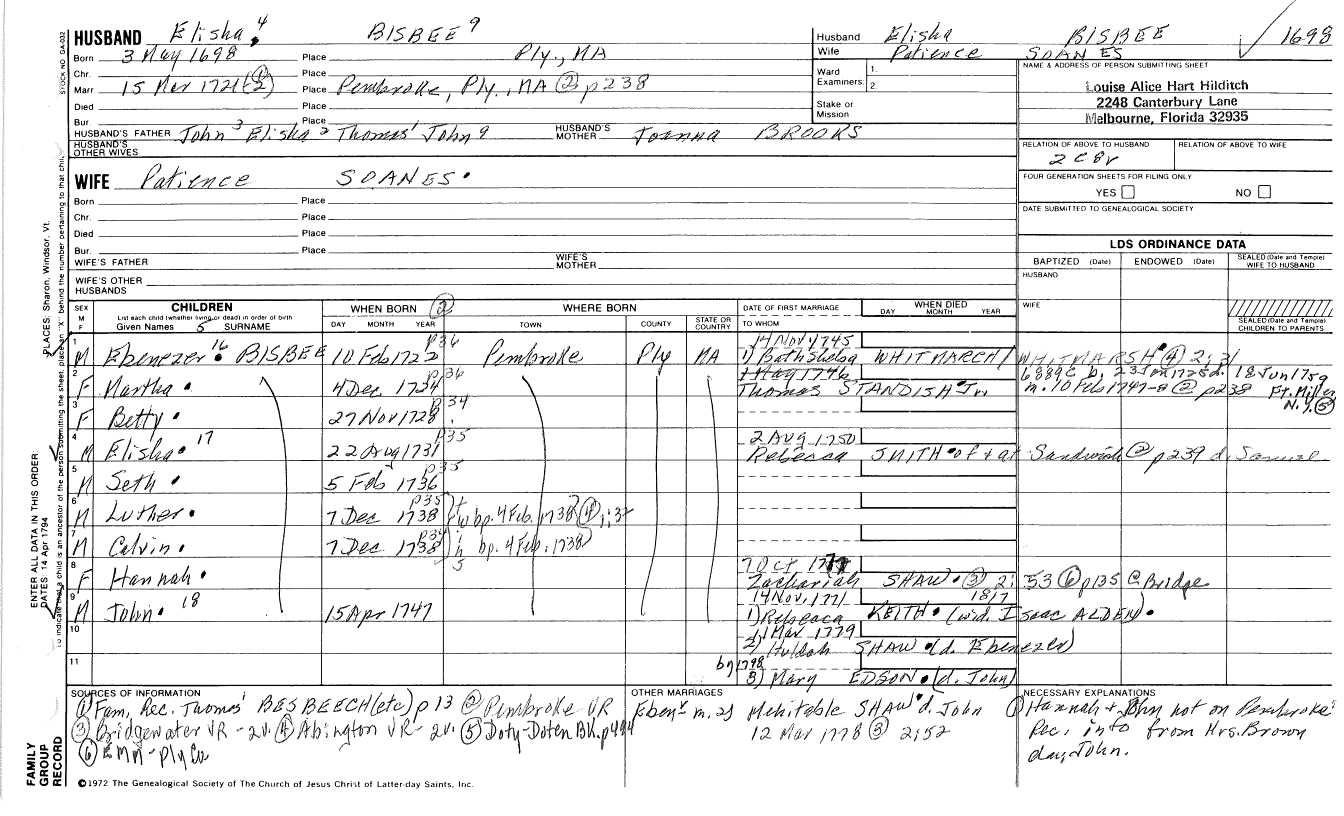 HUSBAND Elisha 4 BISBEE 9
Born 3 May 1698 Place Ply., MA
Chr. Place
Marr 15 Mar 1721(2) Place Pembroke, Ply., MA (2) p238
Died Place
Bur Place
HUSBAND'S FATHER John 3 Elisha 2 Thomas 1 John 9 HUSBAND'S MOTHER Joanna BROOKS
HUSBAND'S OTHER WIVES
Husband Elisha BISBEE 1698
Wife Patience SOANES
Ward Examiners: 1.
2.
Stake or Mission
NAME & ADDRESS OF PERSON SUBMITTING SHEET
Louise Alice Hart Hilditch
2248 Canterbury Lane
Melbourne, Florida 32935
RELATION OF ABOVE TO HUSBAND RELATION OF ABOVE TO WIFE
2 C 8r
FOUR GENERATION SHEETS FOR FILING ONLY
YES NO
DATE SUBMITTED TO GENEALOGICAL SOCIETY
WIFE Patience SOANES.
Born Place
Chr. Place
Died Place
Bur. Place
WIFE'S FATHER WIFE'S MOTHER
WIFE'S OTHER HUSBANDS
LDS ORDINANCE DATA
BAPTIZED (Date) ENDOWED (Date) SEALED (Date and Temple) WIFE TO HUSBAND
HUSBAND
WIFE
SEALED (Date and Temple) CHILDREN TO PARENTS
SEX M F
CHILDREN
List each child (whether living or dead) in order of birth
Given Names 5 SURNAME
WHEN BORN (2)
DAY MONTH YEAR
WHERE BORN
TOWN COUNTY STATE OR COUNTRY
DATE OF FIRST MARRIAGE
TO WHOM
WHEN DIED
DAY MONTH YEAR
p36 14 Nov 1745
1 M Ebenezer. 16 BISBEE 10 Feb 1722 Pembroke Ply MA 1) Bathsheba WHITMARCH/WHITMARSH (4) 2;31
p36 1 May 1746 6889C b. 23 Jan 1725 d. 18 Jun 1759
2 F Martha. 4 Dec 1724 Thomas STANDISH Jr. m. 10 Feb 1747-8 (2) p238 Ft. Miller N.Y. (5)
p34
3 F Betty. 27 Nov 1728
p35 2 Aug 1750
4 M Elisha. 17 22 Aug 1731 Rebecca SMITH of + at Sandwich (2) p239 d. Samuel
p35
5 M Seth. 5 Feb 1736
p35
6 M Luther. 7 Dec 1738 bp. 4 Feb. 1738 (4) 1;32
7 M Calvin. 7 Dec 1738 bp. 4 Feb. 1738
7 Oct
8 F Hannah. Zachariah SHAW. (3) 2; 53 (6) p135 @ Bridge
14 Nov. 1771 1817
9 M John. 18 15 Apr 1747 1) Rebecca KEITH. (wid. Isaac ALDEN).
1 Mar 1779
10 2) Huldah SHAW (d. Ebenezer)
by 1798
11 3) Mary EDSON. (d. John)
SOURCES OF INFORMATION
(1) Fam. Rec. Thomas' BESBEECH (etc) p 13 (2) Pembroke VR
(3) Bridgewater VR - 2v. (4) Abington VR - 2v. (5) Doty-Doten Bk. p494
(6) EMM - Ply Co
OTHER MARRIAGES
Ebenr m. 2) Mehitable SHAW d. John
12 Mar 1778 (3) 2;52
NECESSARY EXPLANATIONS
(1) Hannah + John not on Pembroke
Rec. info from Mrs. Brown
day, John.
©1972 The Genealogical Society of The Church of Jesus Christ of Latter-day Saints, Inc.
STOCK NO GA-032
PLACES: Sharon, Windsor, Vt.
ENTER ALL DATA IN THIS ORDER:
DATES: 14 Apr 1794
To indicate that a child is an ancestor of the person submitting the sheet, place an "X" behind the number pertaining to that child.
FAMILY GROUP RECORD